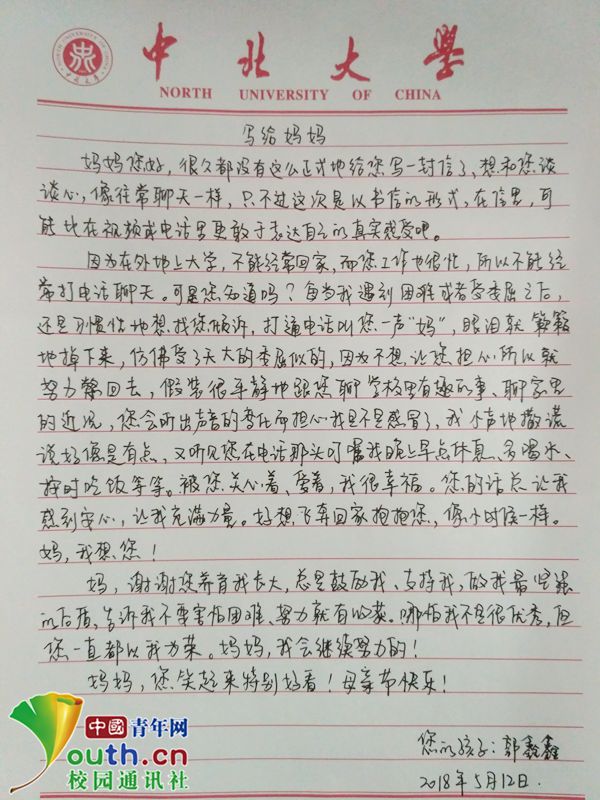 中北大學
NORTH UNIVERSITY OF CHINA
写给妈妈
妈妈您好，很久都没有这么正式地给您写一封信了，想和您谈
谈心，像往常聊天一样，只不过这次是以书信的形式，在信里，可
能比在视频或电话里更敢于表达自己的真实感受吧。
因为在外地上大学，不能经常回家，而您工作也很忙，所以不能经
常打电话聊天。可是您知道吗？每当我遇到困难或者受委屈之后，
还是习惯性地想找您倾诉，打通电话叫您一声“妈”，眼泪就簌簌
地掉下来，仿佛受了天大的委屈似的，因为不想让您担心所以就
努力憋回去，假装很平静地跟您聊学校里有趣的事、聊家里
的近况，您会听出声音的变化而担心我是不是感冒了，我小声地撒谎
说好像是有点，又听见您在电话那头叮嘱我晚上早点休息、多喝水、
按时吃饭等等。被您关心着、爱着，我很幸福。您的话总让我
感到安心，让我充满力量。好想飞奔回家抱抱您，像小时候一样。
妈，我想您！
妈，谢谢您养育我长大，总是鼓励我、支持我，做我最坚强
的后盾，告诉我不要害怕困难、努力就有收获。哪怕我不是很优秀，但
您一直都以我为荣。妈妈，我会继续努力的！
妈妈，您笑起来特别好看！母亲节快乐！
您的孩子：郭鑫鑫
2018年5月12日.
中國青年网
youth.cn
校园通讯社